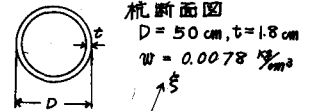 杭断面図
t
D = 50 cm, t = 1.8 cm
w = 0.0078 kg/cm³
D
ξ